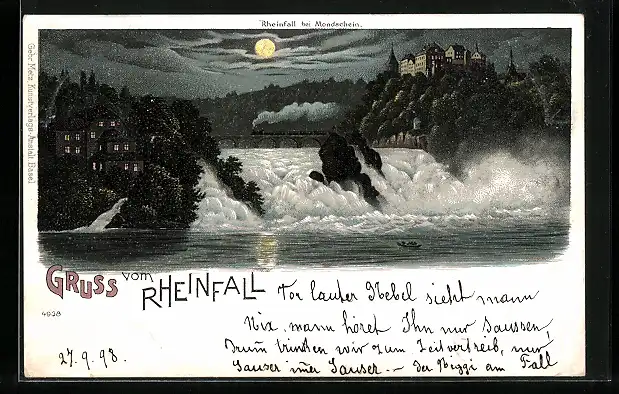 Rheinfall bei Mondschein.
Gebr. Metz Kunstverlags-Anstalt Basel
GRUSS vom RHEINFALL
4928
27.9.98.
Vor lauter Nebel sieht mann
Nix, mann höret Ihn nur Saussen,
Drum trinken wir zum Zeitvertreib, nur
Sauser immer Sauser. – Der am Fall